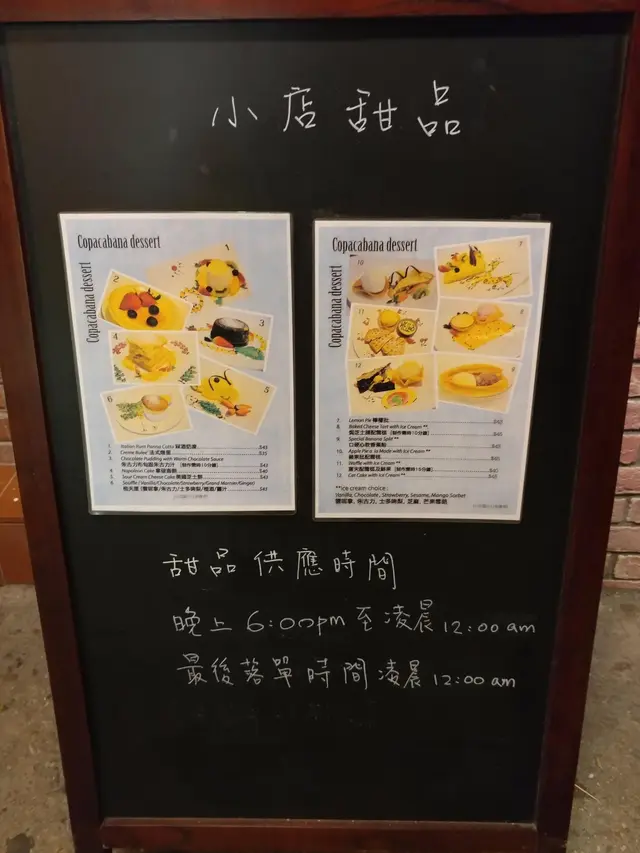 小店甜品
Copacabana dessert
Copacabana dessert
1
2
3
4
5
6
1. Italian Rum Panna Cotta 冧酒奶凍
2. Creme Bulee 法式燉蛋
3. Chocolate Pudding with Warm Chocolate Sauce
朱古力布甸跟朱古力汁 (製作需時10分鐘)
4. Napoleon Cake 拿破崙餅
5. Sour Cream Cheese Cake 美國芝士餅
6. Souffle (Vanilla/Chocolate/Strawberry/Grand Marnier/Ginger)
Copacabana dessert
Copacabana dessert
7
8
10
11
12
7. Lemon Pie 檸檬批
8. Baked Cheese Tart with Ice Cream **
焗芝士撻配雪糕 (製作需時10分鐘)
9. Special Banana Split **
10. Apple Pie a La Mode with Ice Cream **
蘋果批配雪糕
11. Waffle with Ice Cream **
12. Get Cake with Ice Cream **
**Ice cream choice :
Vanilla, Chocolate, Strawberry, Sesame, Mango Sorbet
雲呢拿, 朱古力, 士多啤梨, 芝麻, 芒果雪葩
甜品供應時間
晚上 6:00pm 至凌晨 12:00 am
最後落單時間凌晨 12:00 am